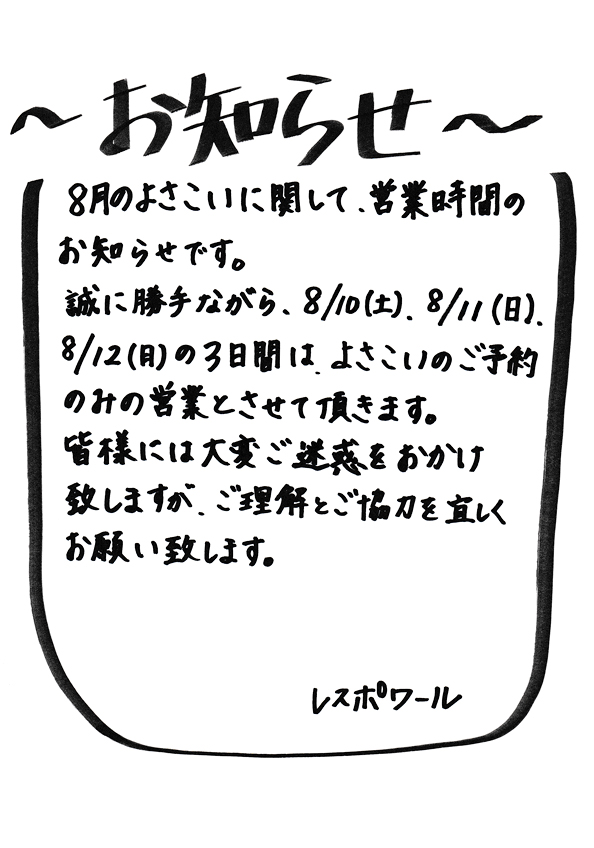 ～お知らせ～
8月のよさこいに関して、営業時間の
お知らせです。
誠に勝手ながら、8/10(土)、8/11(日)、
8/12(月)の3日間は、よさこいのご予約
のみの営業とさせて頂きます。
皆様には大変ご迷惑をおかけ
致しますが、ご理解とご協力を宜しく
お願い致します。
レスポワール